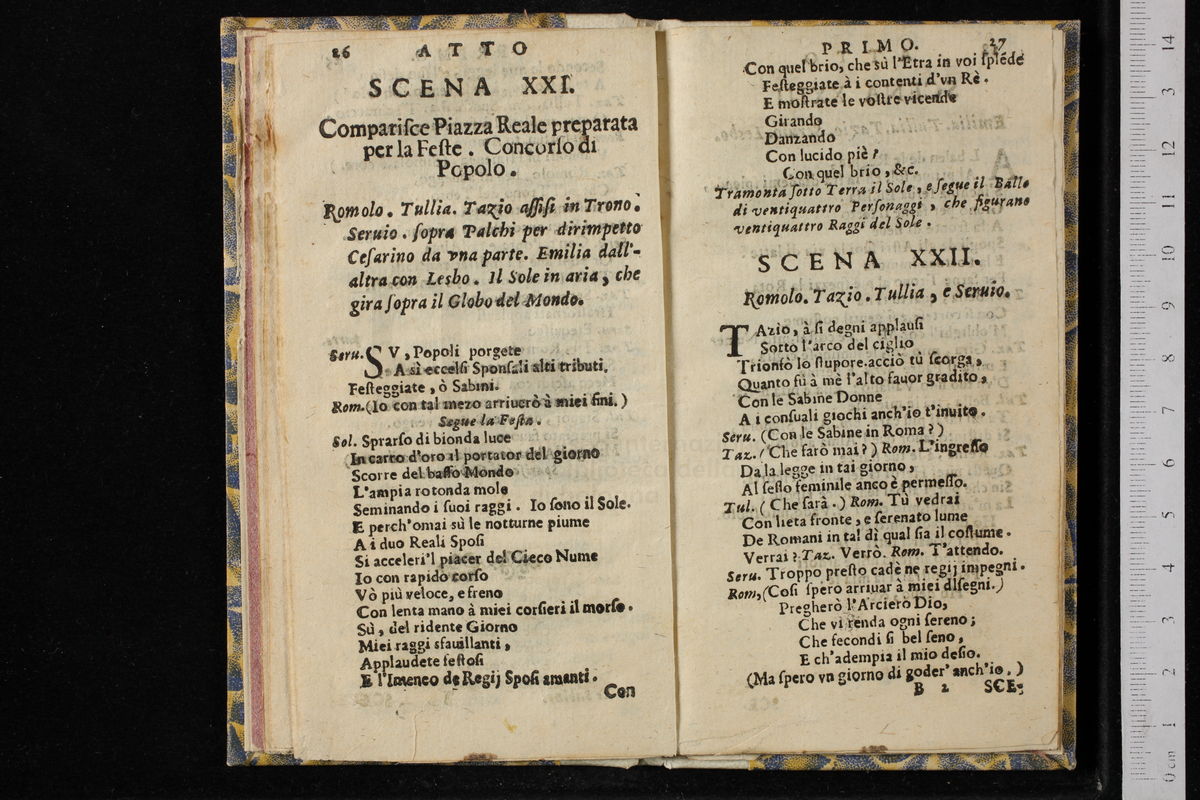 26 ATTO
SCENA XXI.
Compariſce Piazza Reale preparata
per la Feſte. Concorſo di
Popolo.
Romolo. Tullia. Tazio aſſiſi in Trono.
Seruio. ſopra Palchi per dirimpetto
Ceſarino da vna parte. Emilia dall'-
altra con Lesbo. Il Sole in aria, che
gira ſopra il Globo del Mondo.
Seru. SV, Popoli porgete
A sì eccelſi Sponſali alti tributi.
Feſteggiate, ò Sabini.
Rom. (Io con tal mezo arriuerò à miei fini.)
Segue la Feſta.
Sol. Sprarſo di bionda luce
In carro d'oro il portator del giorno
Scorre del baſſo Mondo
L'ampia rotonda mole
Seminando i ſuoi raggi. Io ſono il Sole.
E perch'omai sù le notturne piume
A i duo Reali Spoſi
Si acceleri'l piacer del Cieco Nume
Io con rapido corſo
Vò più veloce, e freno
Con lenta mano à miei corſieri il morſo.
Sù, del ridente Giorno
Miei raggi sfauillanti,
Applaudete feſtoſi
E l'Imeneo de Regij Spoſi amanti.
Con
PRIMO. 27
Con quel brio, che sù l'Etra in voi ſplẽde
Feſteggiate à i contenti d'vn Rè.
E moſtrate le voſtre vicende
Girando
Danzando
Con lucido piè?
Con quel brio, &c.
Tramonta ſotto Terra il Sole, e ſegue il Ballo
di ventiquattro Perſonaggi, che figurano
ventiquattro Raggi del Sole.
SCENA XXII.
Romolo. Tazio. Tullia, e Seruio.
TAzio, à ſi degni applauſi
Sotto l'arco del ciglio
Trionfò lo ſtupore. acciò tù ſcorga,
Quanto fù à mè l'alto fauor gradito,
Con le Sabine Donne
A i conſuali giochi anch'io t'inuito.
Seru. (Con le Sabine in Roma?)
Taz. (Che farò mai?) Rom. L'ingreſſo
Da la legge in tai giorno,
Al ſeſſo feminile anco è permeſſo.
Tul. (Che ſarà.) Rom. Tù vedrai
Con lieta fronte, e ſerenato lume
De Romani in tal dì qual ſia il coſtume.
Verrai? Taz. Verrò. Rom. T'attendo.
Seru. Troppo preſto cade ne regij impegni.
Rom, (Coſi ſpero arriuar à miei diſegni.)
Pregherò l'Arciero Dio,
Che vi renda ogni ſereno;
Che fecondi ſi bel ſeno,
E ch'adempia il mio deſio.
(Ma ſpero vn giorno di goder' anch'io.)
B 2 SCE-